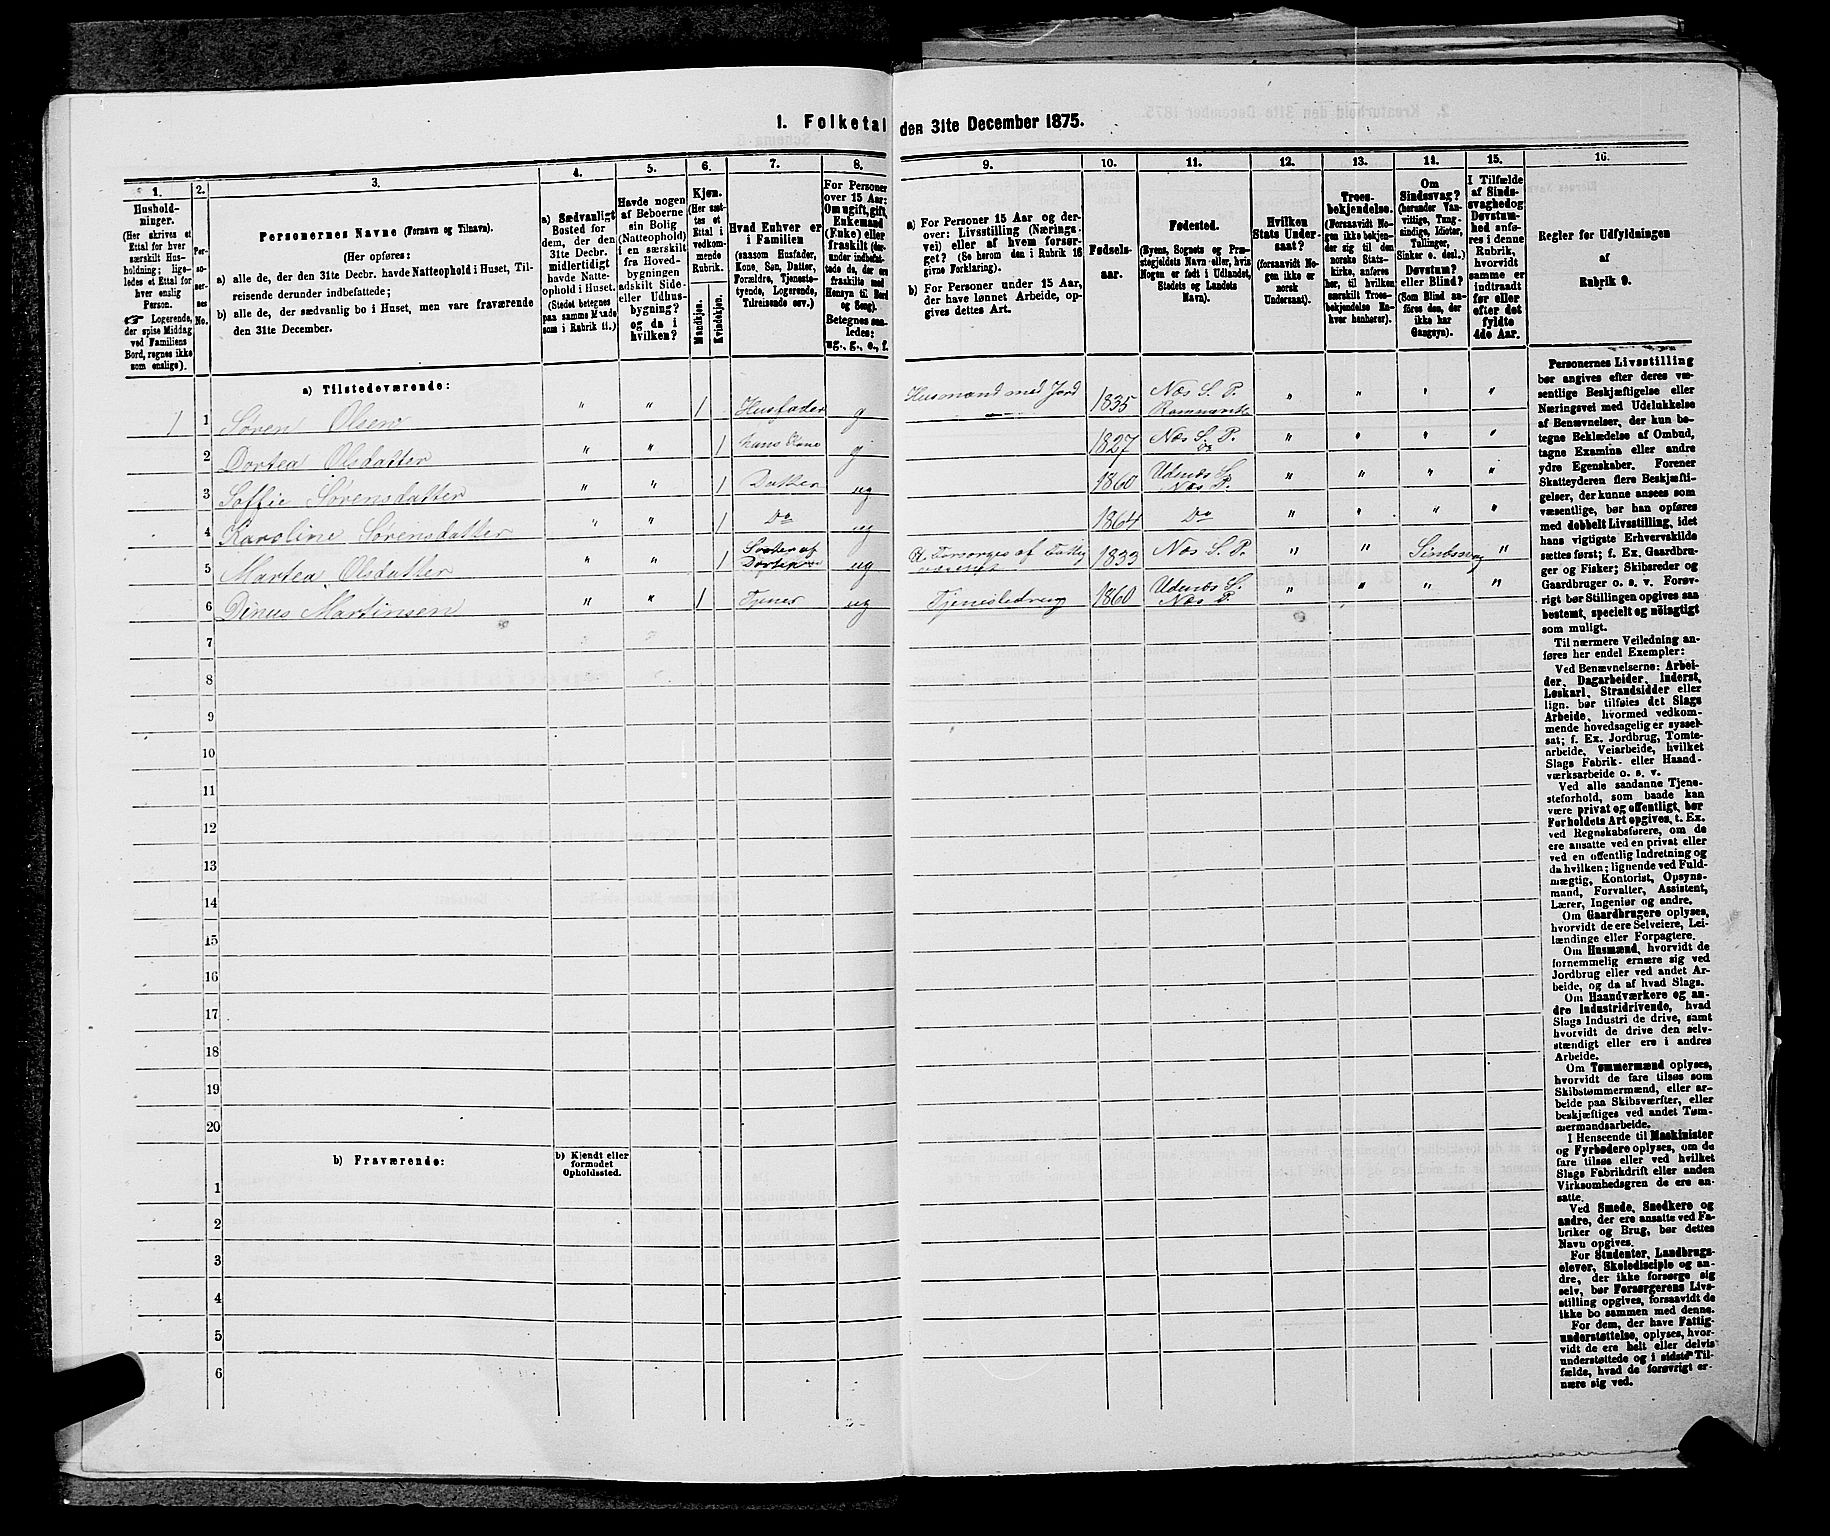 1. Folketal den 31te December 1875.
1. 2. 3. 4. 5. 6. 7. 8. 9. 10. 11. 12. 13. 14. 15. 16.
Hushold-
ninger.
(Her skrives et
Ettal for hver
særskilt Hus-
holdning; lige-
ledes et Ettal for
hver enslig
Person.
☞ Logerende,
der spise Middag
ved Familiens
Bord, regnes ikke
som enslige).
Per-
so-
ner-
nes
No.
Personernes Navne (Fornavn og Tilnavn).
(Her opføres:
a) alle de, der den 31te Decbr. havde Natteophold i Huset, Til-
reisende derunder indbefattede;
b) alle de, der sædvanlig bo i Huset, men vare fraværende
den 31te December.
a) Sædvanligt
Bosted for
dem, der den
31te Decbr.
midlertidigt
havde Natte-
ophold i Huset.
(Stedet betegnes
paa samme Maade
som i Rubrik 11.)
Havde nogen
af Beboerne
sin Bolig
(Natteophold)
i en særskilt
fra Hoved-
bygningen
adskilt Side-
eller Udhus-
bygning?
og da i
hvilken?
Kjøn.
(Her sæt-
tes et
Ettal i
vedkom-
mende
Rubrik.
Mandkjøn.
Kvindekjøn.
Hvad Enhver er
i Familien
(saasom Husfader,
Kone, Søn, Datter,
Forældre, Tjeneste-
tyende, Logerende,
Tilreisende osv.)
For Personer
over 15 Aar:
Om ugift, gift,
Enkemand
(Enke) eller
fraskilt (der-
under indbefat-
tede de, der ere
fraskilte med
Hensyn til Bord
og Seng).
Betegnes saa-
ledes:
ug., g., e., f.
a) For Personer 15 Aar og der-
over: Livsstilling (Nærings-
vei) eller af hvem forsør-
get? (Se herom den i Rubrik 16
givne Forklaring).
b) For Personer under 15 Aar,
der have lønnet Arbeide, op-
gives dettes Art.
Fødsels-
aar.
Fødested.
(Byens, Sognets og Præ-
stegjeldets Navn eller, hvis
Nogen er født i Udlandet,
Stedets og Landets
Navn).
Hvilken
Stats Under-
saat?
(forsaavidt No-
gen ikke er
norsk
Undersaat).
Troes-
bekjendelse.
(Forsaavidt No-
gen ikke bekjen-
der sig til den
norske Stats-
kirke, anføres
her, til hvilken
særskilt Troes-
bekjendelse En-
hver henhører).
Om
Sindssvag?
(herunder Van-
vittige, Tung-
sindige, Idioter,
Tullinger,
Sinker o. desl.)
Døvstum?
eller Blind?
(Som Blind an-
føres den, der
ikke har
Gangsyn).
I Tilfælde
af Sinds-
svaghed og
Døvstum-
hed anfø-
res i denne
Rubrik,
hvorvidt
samme er
indtraadt
før eller
efter det
fyldte
4de Aar.
Regler for Udfyldningen
af
Rubrik 9.
a) Tilstedeværende:
1 1 Søren Olsen " " 1 Husfader g Husmand med Jord 1835 Næs S. P. Romerike " " " "
2 Dortea Olsdatter " " 1 hans Kone g 1827 Næs S. P. Do " " " "
3 Soffie Sørensdatter " " 1 Datter ug 1860 Udenæs S. Næs P. " " " "
4 Karoline Sørensdatter " " 1 Do ug 1864 Do " " " "
5 Martea Olsdatter " " 1 Søster af ug Forsørges af Fattig 1833 Næs S. P. " " Sindssvag "
6 Dinus Martinsen " " 1 Tjener ug Tjenestedreng 1860 Udenæs S. Næs P. " " " "
7
8
9
10
11
12
13
14
15
16
17
18
19
20
b) Fraværende:
b) Kjendt eller
formodet
Opholdssted.
1
2
3
4
5
6
Personernes Livsstilling
bør angives efter deres væ-
sentlige Beskjæftigelse eller
Næringsvei med Udelukkelse
af Benævnelser, der kun be-
tegne Beklædelse af Ombud,
tagne Examina eller andre
ydre Egenskaber. Forener
Skatteyderen flere Beskjæfti-
gelser, der kunne ansees som
væsentlige, bør han opføres
med dobbelt Livsstilling, idet
hans vigtigste Erhvervskilde
sættes først; f. Ex. Gaardbru-
ger og Fisker; Skibsreder og
Gaardbruger o. s. v. Forøv-
rigt bør Stillingen opgives saa
bestemt, specielt og nöiagtigt
som muligt.
Til nærmere Veiledning an-
føres her endel Exempler:
Ved Benævnelserne: Arbei-
der, Dagarbeider, Inderst,
Løskarl, Strandsidder eller
lign. bør tilføies det Slags
Arbeide, hvormed vedkom-
mende hovedsagelig er syssel-
sat; f. Ex. Jordbrug, Tomte-
arbeide, Veiarbeide, hvilket
Slags Fabrik- eller Haand-
værksarbeide o. s. v.
Ved alle saadanne Tjene-
steforhold, som baade kan
være privat og offentligt, bør
Forholdets Art opgives, t. Ex.
ved Regnskabsførere, om de
ere ansatte ved en privat eller
ved en offentlig Indretning og
da hvilken; lignende ved Fuld-
mægtig, Kontorist, Opsyns-
mand, Forvalter, Assistent,
Lærer, Ingeniør og andre.
Om Gaardbrugere oplyses,
hvorvidt de ere Selveiere, Lei-
lændinge eller Forpagtere.
Om Husmænd, hvorvidt de
fornemmelig ernære sig ved
Jordbrug eller ved andet Ar-
beide, og da af hvad Slags.
Om Haandværkere og an-
dre Industridrivende, hvad
Slags Industri de drive, samt
hvorvidt de drive den selv-
stændigt eller ere i andres
Arbeide.
Om Tømmermænd oplyses,
hvorvidt de fare tilsøs som
Skibstømmermænd, eller ar-
beide paa Skibsværfter, eller
beskjæftiges ved andet Tøm-
mermandsarbeide.
I Henseende til Maskinister
og Fyrbødere oplyses, om de
fare tilsøs eller ved hvilket
Slags Fabrikdrift eller anden
Virksomhedsgren de ere an-
satte.
Ved Smede, Snedkere og
andre, der ere ansatte ved Fa-
briker og Brug, bør dettes
Navn opgives.
For Studenter, Landbrugs-
elever, Skoledisciple og an-
dre, der ikke forsørge sig
selv, bør Forsørgerens Livs-
stilling opgives, forsaavidt de
ikke bo sammen med denne.
For dem, der have Fattig-
understøttelse, oplyses, hvor-
vidt de ere helt eller delvis
understøttede og i sidste Til-
fælde, hvad de forøvrigt er-
nære sig ved.